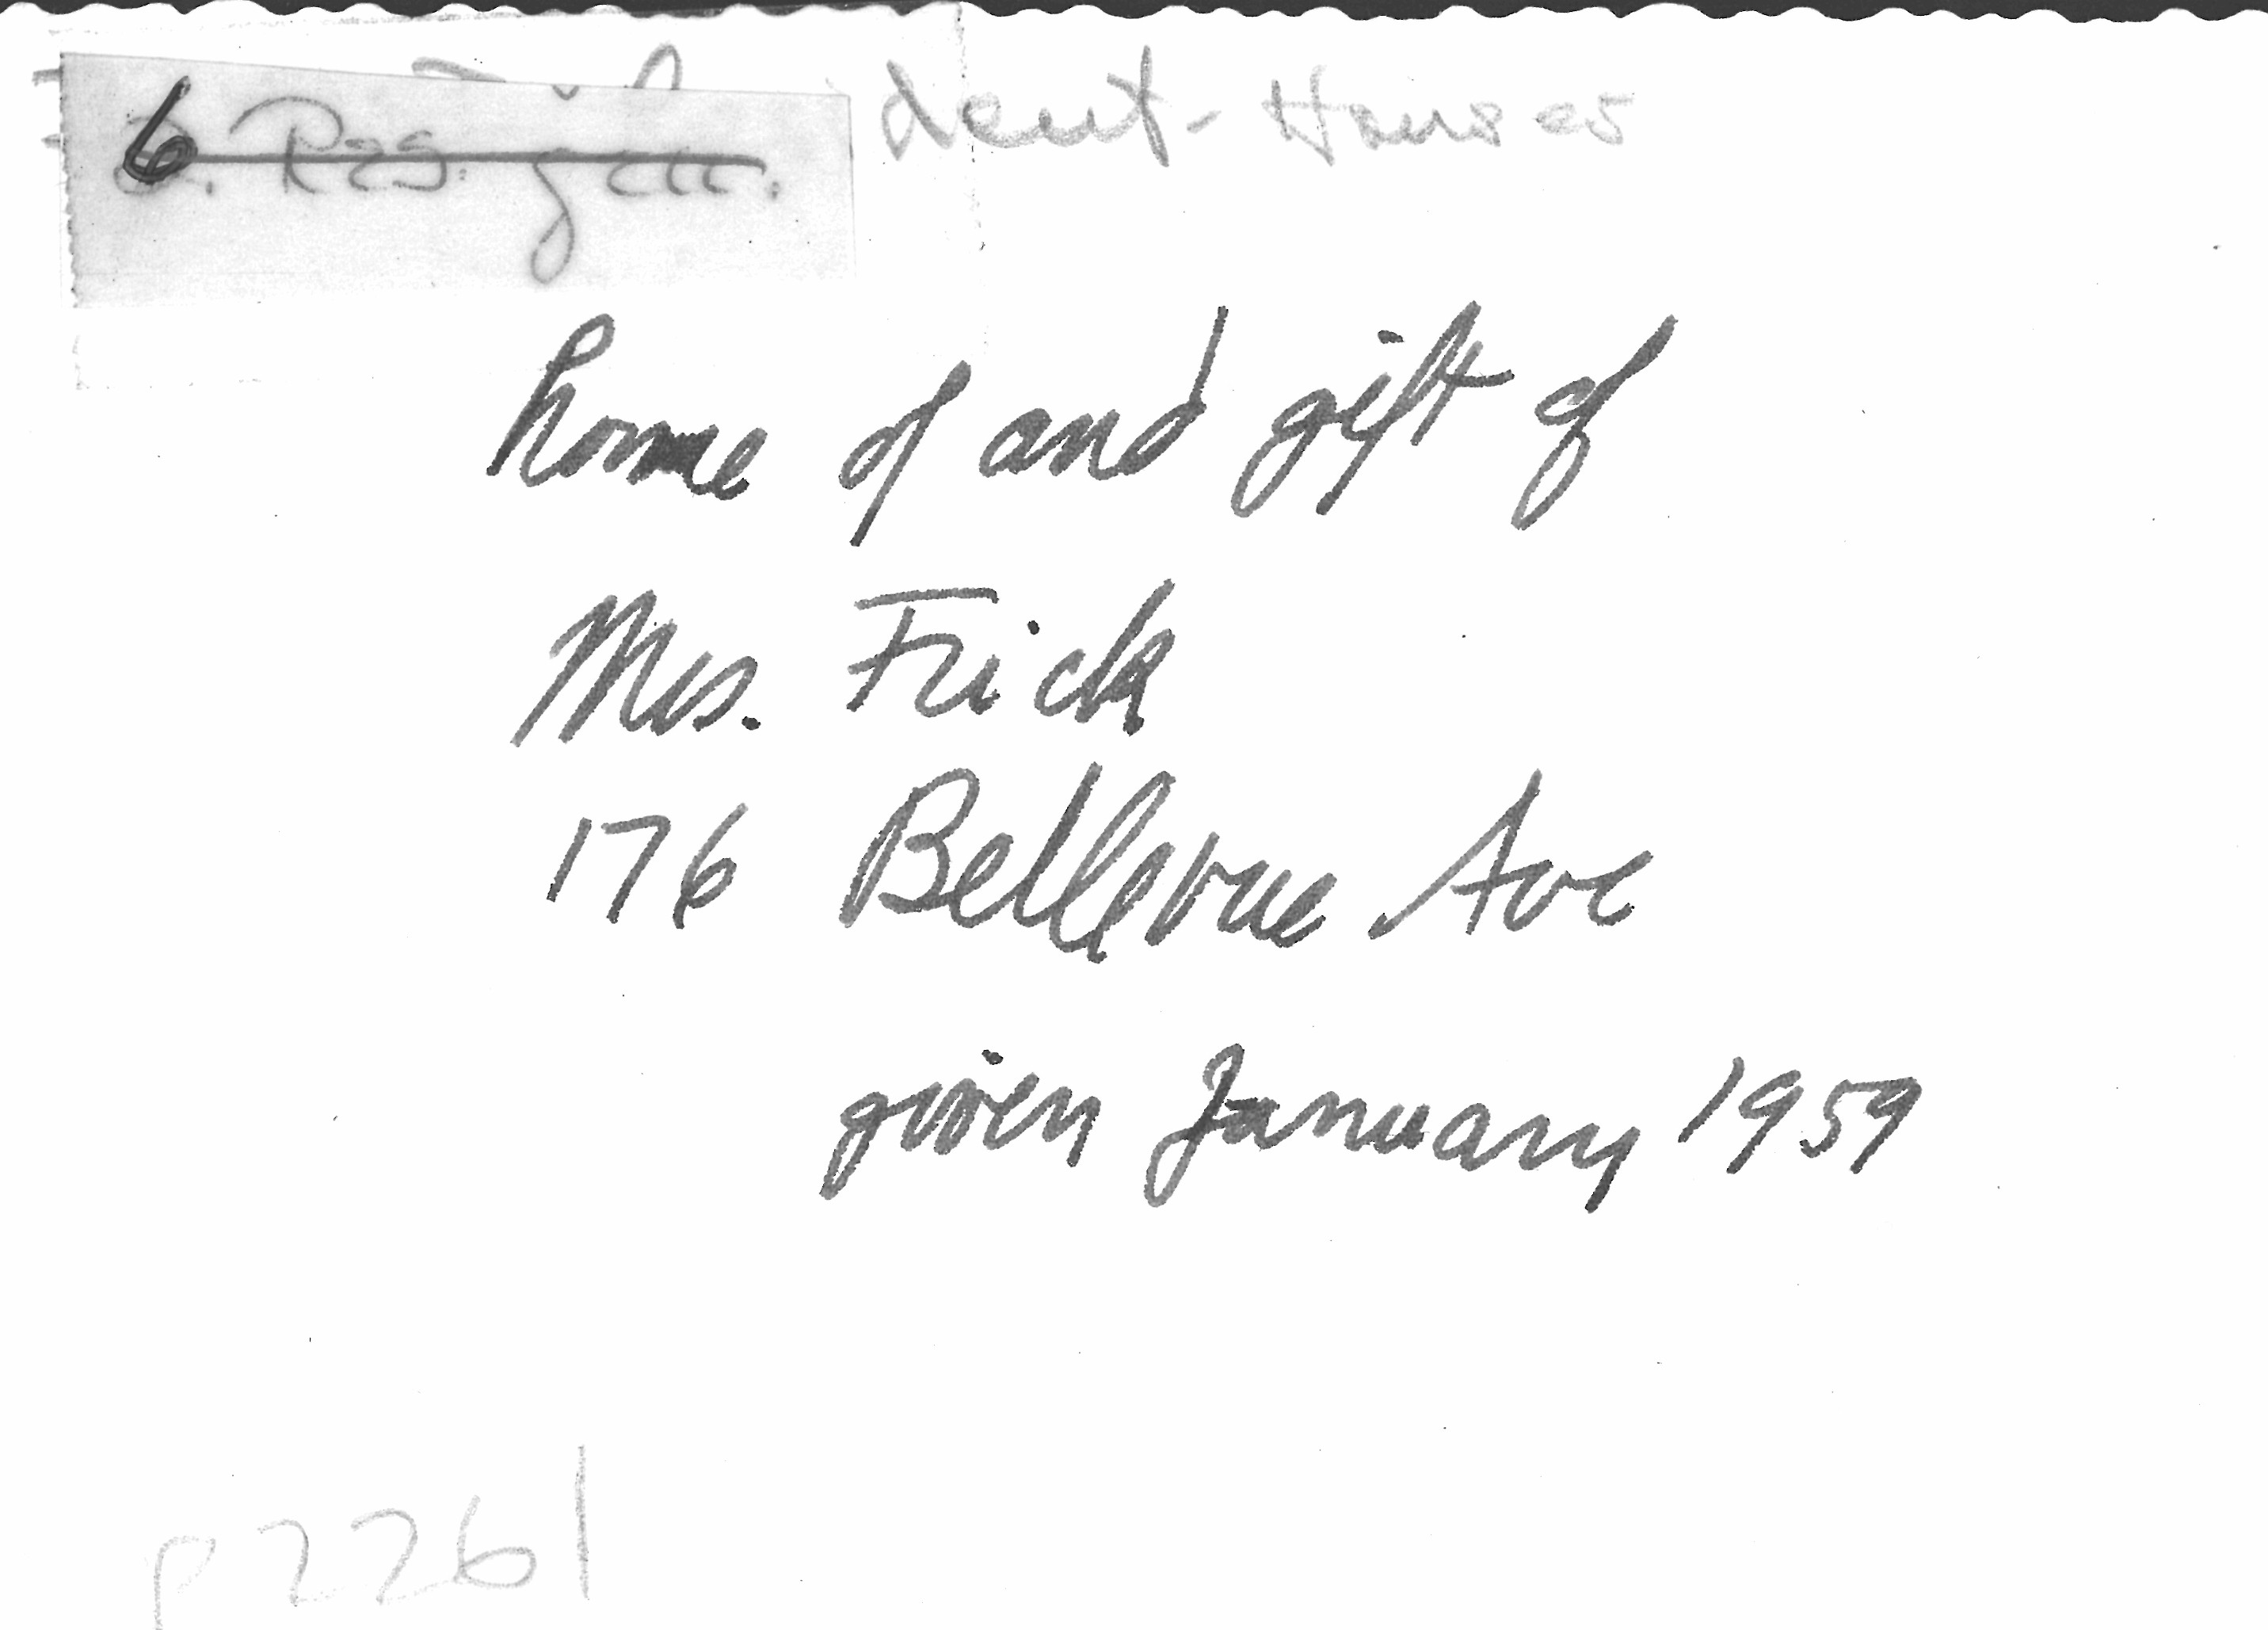 6. Res. gen.
dent - Houses
home of and gift of
Mrs. Frick
176 Bellevue Ave
given January 1959
P2261